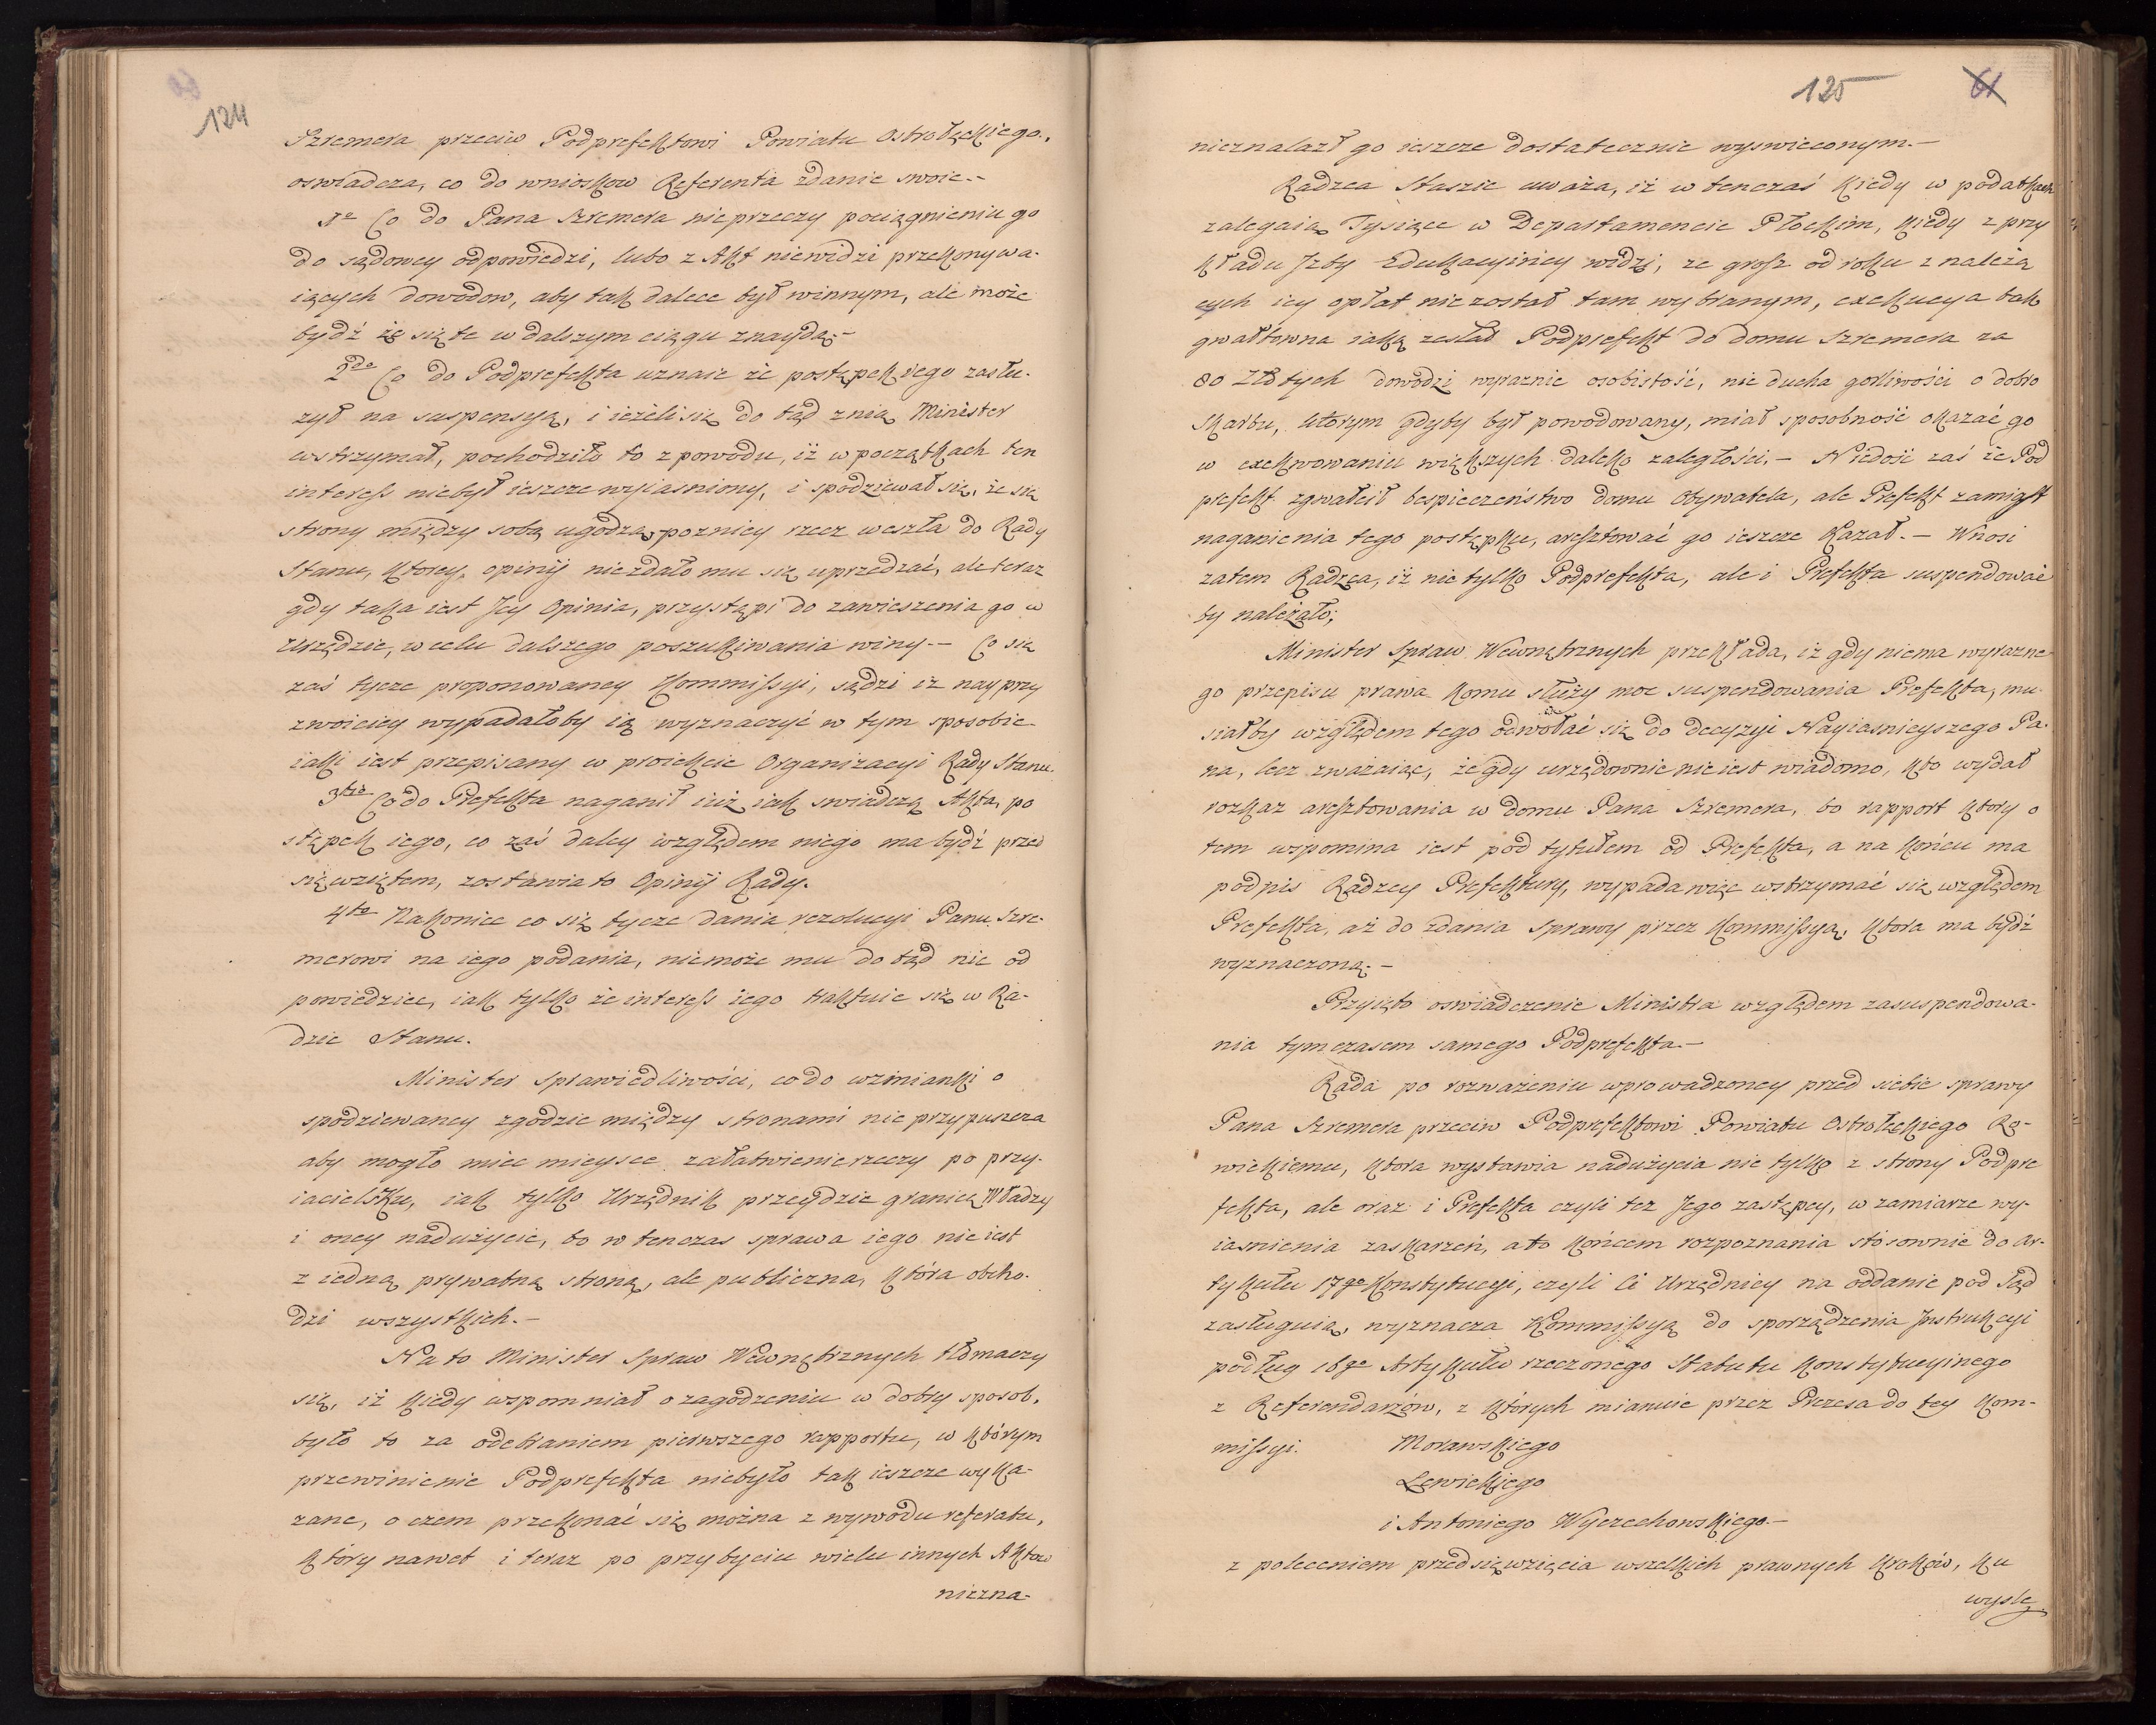 124
Szremera przeciw Podprefektowi Powiatu Ostrołęckiego.,
oswiadcza, co do wnioskow Referenta zdanie swoie.-
1o Co do Pana Szremera nieprzeczy pociągnieniu go
do sądowey odpowiedzi, lubo z Akt niewidzi przekonywa-
iących dowodow, aby tak dalece był winnym, ale może
bydź że się te w dalszym ciągu znaydą.-
2do Co do Podprefekta uznaie że postępek iego zasłu-
żył na suspensyą, i ieżeli się do tąd z nią Minister
wstrzymał, pochodziło to z powodu, iż w początkach ten
interess niebył ieszcze wyiasniony, i spodziewał się, że się
strony między sobą ugodzą, pozniey rzecz weszła do Rady
Stanu, ktorey opinij niezdało mu się uprzedzać, ale teraz
gdy taka iest Jey Opinia, przystąpi do zawieszenia go w
Urzędzie, w celu dalszego poszukiwania winy.- Co się
zaś tycze proponowaney Kommissyi, sądzi iż nayprzy
zwoiciey wypadałoby ią wyznaczyć w tym sposobie
iaki iest przepisany w proiekcie Organizacyi Rady Stanu.
3tio Co do Prefekta naganił iuż iak swiadczą Akta, po
stępek iego, co zaś daley względem niego ma bydź przed
sięwziętem, zostawia to Opinij Rady.
4to Nakoniec co się tycze dania rezolucyi Panu Szre-
merowi na iego podania, niemoże mu do tąd nic od
powiedziec, iak tylko że interess iego traktuie się w Ra-
dzie Stanu.
Minister Sprawiedliwości, co do wzmianki o
spodziewaney zgodzie między stronami nie przypuszcza
aby mogło miec mieysce załatwienie rzeczy po przy-
iacielsku, iak tylko Urzędnik przeydzie granice Władzy
i oney nadużycie, bo w tenczas sprawa iego nie iest
z iedną prywatną stroną, ale publiczna, która obcho-
dzi wszystkich.-
Na to Minister Spraw Wewnętrznych tłomaczy
się, iż kiedy wspomniał o zagodzeniu w dobry sposob,
było to za odebraniem pierwszego rapportu, w którym
przewinienie Podprefekta niebyło tak ieszcze wyka-
zane, o czem przekonać się można z wywodu referatu,
który nawet i teraz po przybyciu wielu innych Aktow
niezna-
125
61
nieznalazł go ieszcze dostatecznie wyswieconym.-
Radzca Staszic uważa, iż w tenczaś kiedy w podatkach
zalegaią Tysiące w Departamencie Płockim, kiedy z przy
kładu Jzby Edukacyiney widzi, ze grosz od roku z należą
cych iey opłat nie został tam wybranym, exekucya tak
gwałtowna iaką zesłał Podprefekt do domu Szremera za
80 Złotych dowodzi wyraznie osobistość, nie ducha gorliwości o dobro
Skarbu, ktorym gdyby był powodowany, miał sposobność okazać go
w exekwowaniu większych daleko zaległości.- Niedość zaś że Pod
prefekt zgwałcił bespieczeństwo domu Obywatela, ale Prefekt zamiast
naganienia tego postępku, aresztować go ieszcze kazał.- Wnosi
zatem Radzca, iż nie tylko Podprefekta, ale i Prefekta suspendować
by należało;
Minister Spraw Wewnętrznych przekłada, iż gdy niema wyrazne-
go przepisu prawa komu służy moc suspendowania Prefekta, mu-
siałby względem tego odwołać się do decyzyi Nayiasnieyszego Pa-
na, lecz zważaiąc, że gdy urzędownie nie iest wiadomo, kto wydał
rozkaz aresztowania w domu Pana Szremera, bo rapport ktory o
tem wspomina iest pod tytułem od Prefekta, a na końcu ma
podpis Radzcy Prefektury, wypada więc wstrzymać się względem
Prefekta, aż do zdania Sprawy przez Kommissyą, ktora ma bydź
wyznaczoną.-
Przyięto oswiadczenie Ministra względem zasuspendowa-
nia tymczasem samego Podprefekta.-
Rada po rozważeniu wprowadzoney przed siebie sprawy
Pana Szremera przeciw Podprefektowi Powiatu Ostrołęckiego Rę-
wiekiemu, ktora wystawia nadużycia nie tylko z strony Podpre
fekta, ale oraz i Prefekta czyli tez Jego zastępcy, w zamiarze wy-
iasnienia zaskarzeń, a to końcem rozpoznania stosownie do Ar-
tykułu 17go Konstytucyi, czyli Ci Urzędnicy na oddanie pod Sąd
zasługuią, wyznacza Kommissyą do sporządzenia Jnstrukcyi
podług 16go Artykułu rzeczonego Statutu Konstytucyinego
z Referendarzów, z których mianuie przez Prezesa do tey Kom-
missyi. Morawskiego
Lewickiego
i Antoniego Wyczechowskiego.-
z poleceniem przedsięwzięcia wszelkich prawnych kroków, ku
wysle